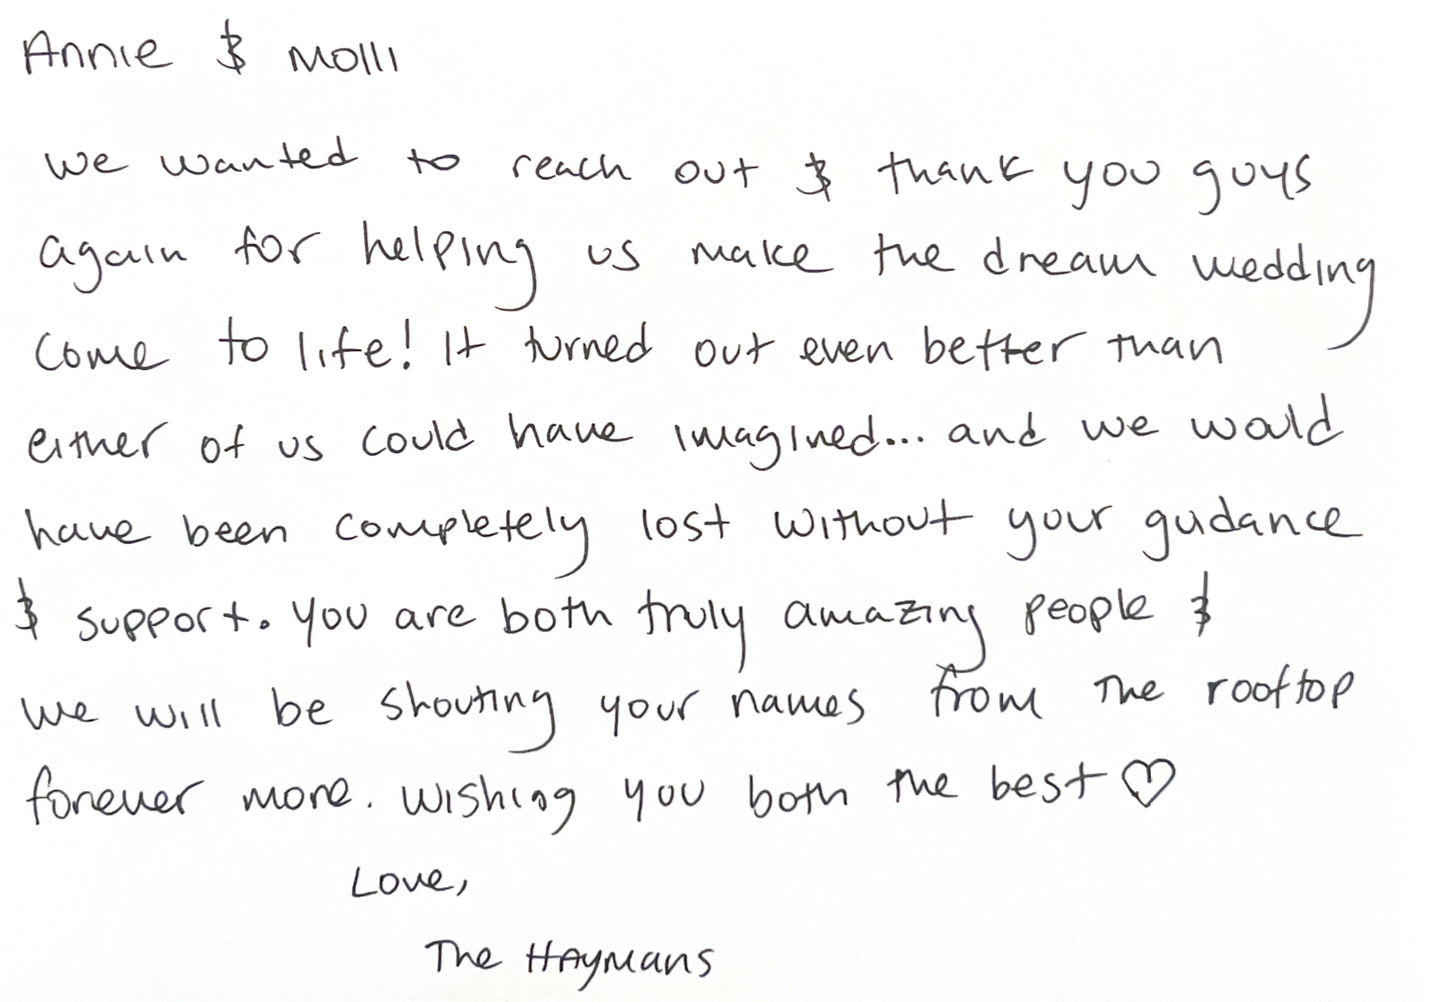 Annie & Molli
We wanted to reach out & thank you guys
again for helping us make the dream wedding
come to life! It turned out even better than
either of us could have imagined... and we would
have been completely lost without your gudance
& support. You are both truly amazing people &
we will be shouting your names from the rooftop
forever more. Wishing you both the best ♡
Love,
The Haymans